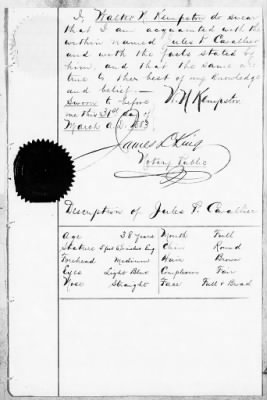 I, Walter V. Kempster do swear
that I am acquainted with the
within named Jules P. Cavallier
and with the facts stated by
him, and that the same are
true to the best of my knowledge
and belief.—
Sworn to before
me this 31st day of
March A.D. 1883
Kempster.
James L King
Notary Public
Description of Jules P. Cavallier
Age 38 Years Mouth Full
Stature 5 feet inches Eng Chin Round
Forehead Medium Hair Brown
Eyes Light Blue Complexion Fair
Nose Straight Face Full & Broad